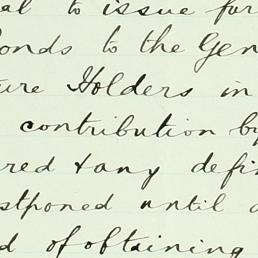 al to issue fur
onds to the Gen
ture Holders in
contribution by
red & any defin
stponed until a
d of obtaining